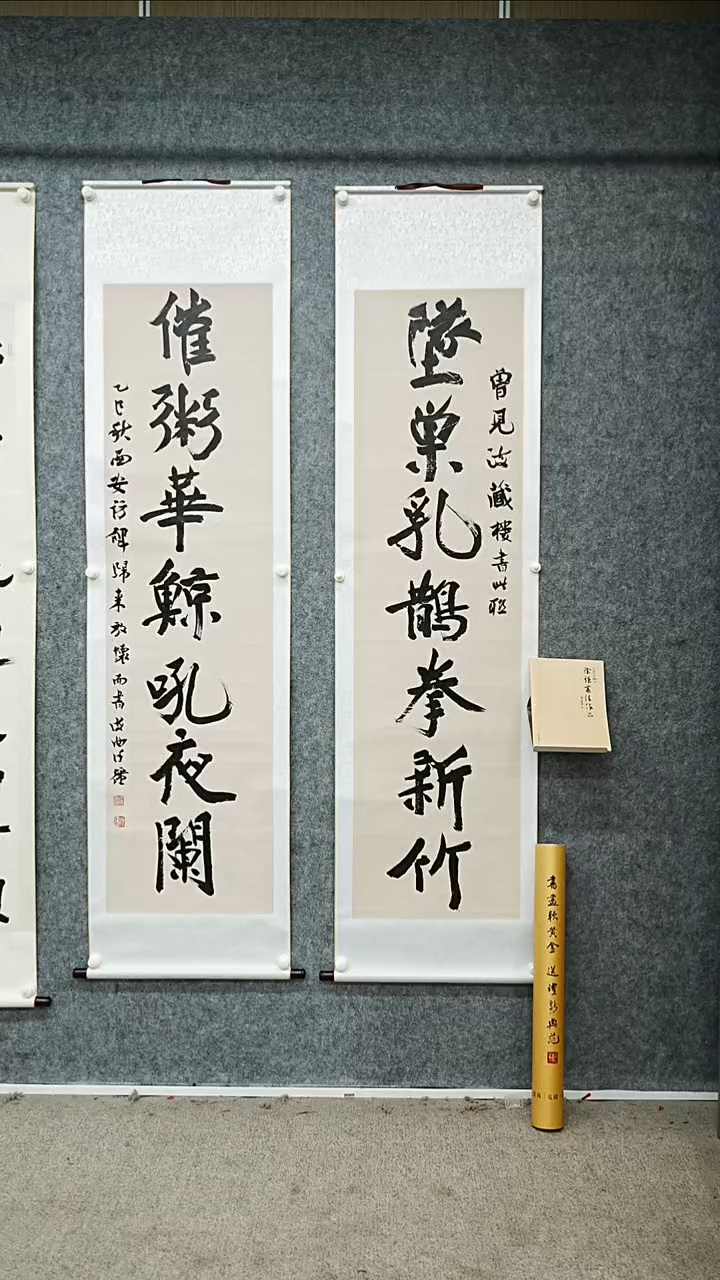 墜巢乳鵲拳新竹
曾見 藏樓書此聯
催粥華鯨吼夜闌
乙巳秋西安訪碑歸來 懷而書
書畫軟黃金 送禮新典范